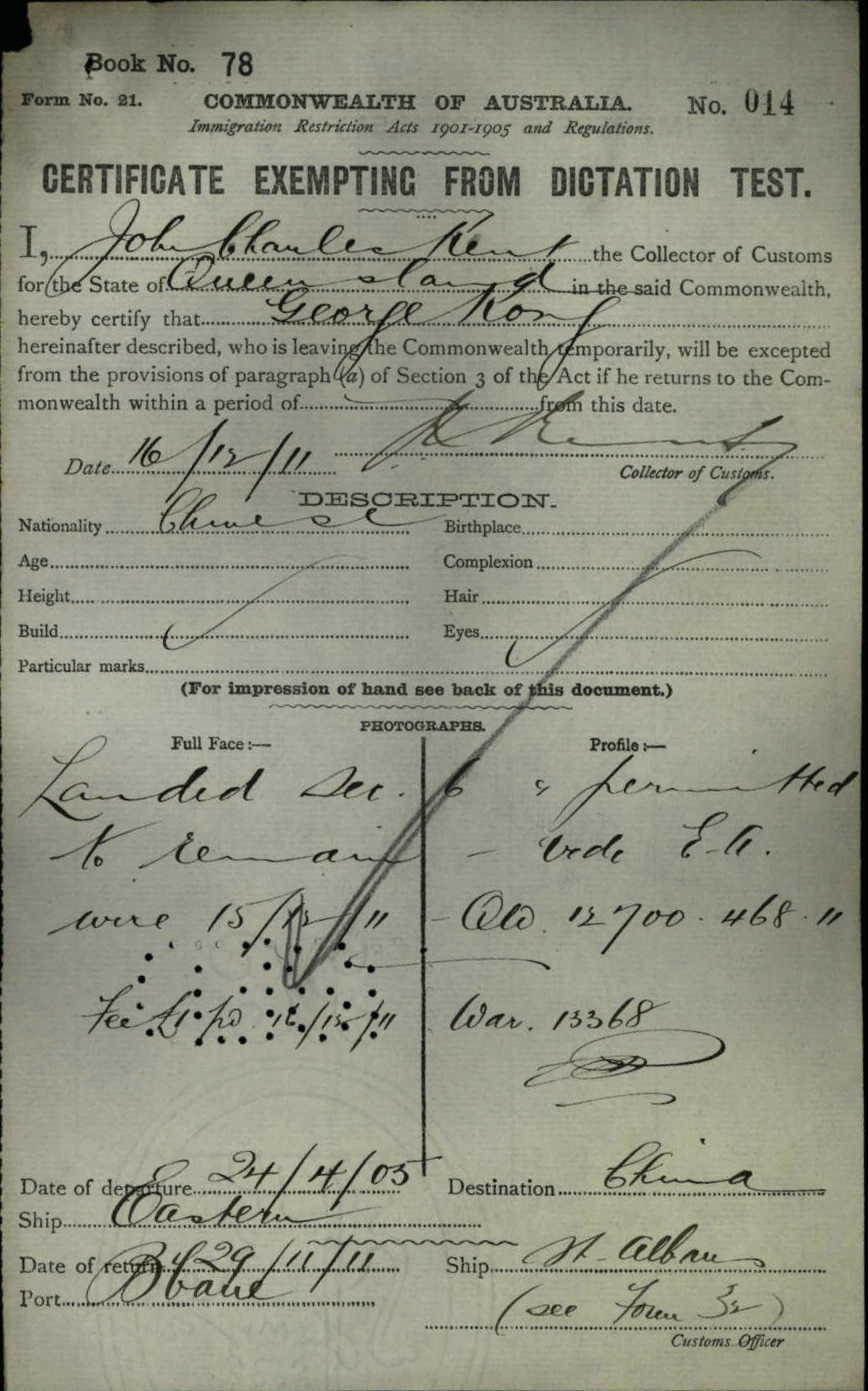 Book No. 78
Form No. 21. COMMONWEALTH OF AUSTRALIA. No. 014
Immigration Restriction Acts 1901-1905 and Regulations.
CERTIFICATE EXEMPTING FROM DICTATION TEST.
I, John Charles Kent the Collector of Customs
for the State of Queensland in the said Commonwealth,
hereby certify that George Kong
hereinafter described, who is leaving the Commonwealth temporarily, will be excepted
from the provisions of paragraph (a) of Section 3 of the Act if he returns to the Com-
monwealth within a period of from this date.
Date 16/12/11 Kent
Collector of Customs.
DESCRIPTION.
Nationality Chinese Birthplace
Age Complexion
Height Hair
Build Eyes
Particular marks
(For impression of hand see back of this document.)
PHOTOGRAPHS.
Full Face:— Profile:—
Landed Dec. & permitted
to remain – vide E.A.
wire 15/12/11 – Qld. 12700.468.11
Fee £1 pd 16/12/11 War. 13368
Date of departure 24/4/05 Destination China
Ship Eastern
Date of return 29/11/11 Ship St Albans
Port Bbane
(see Form 32)
Customs Officer